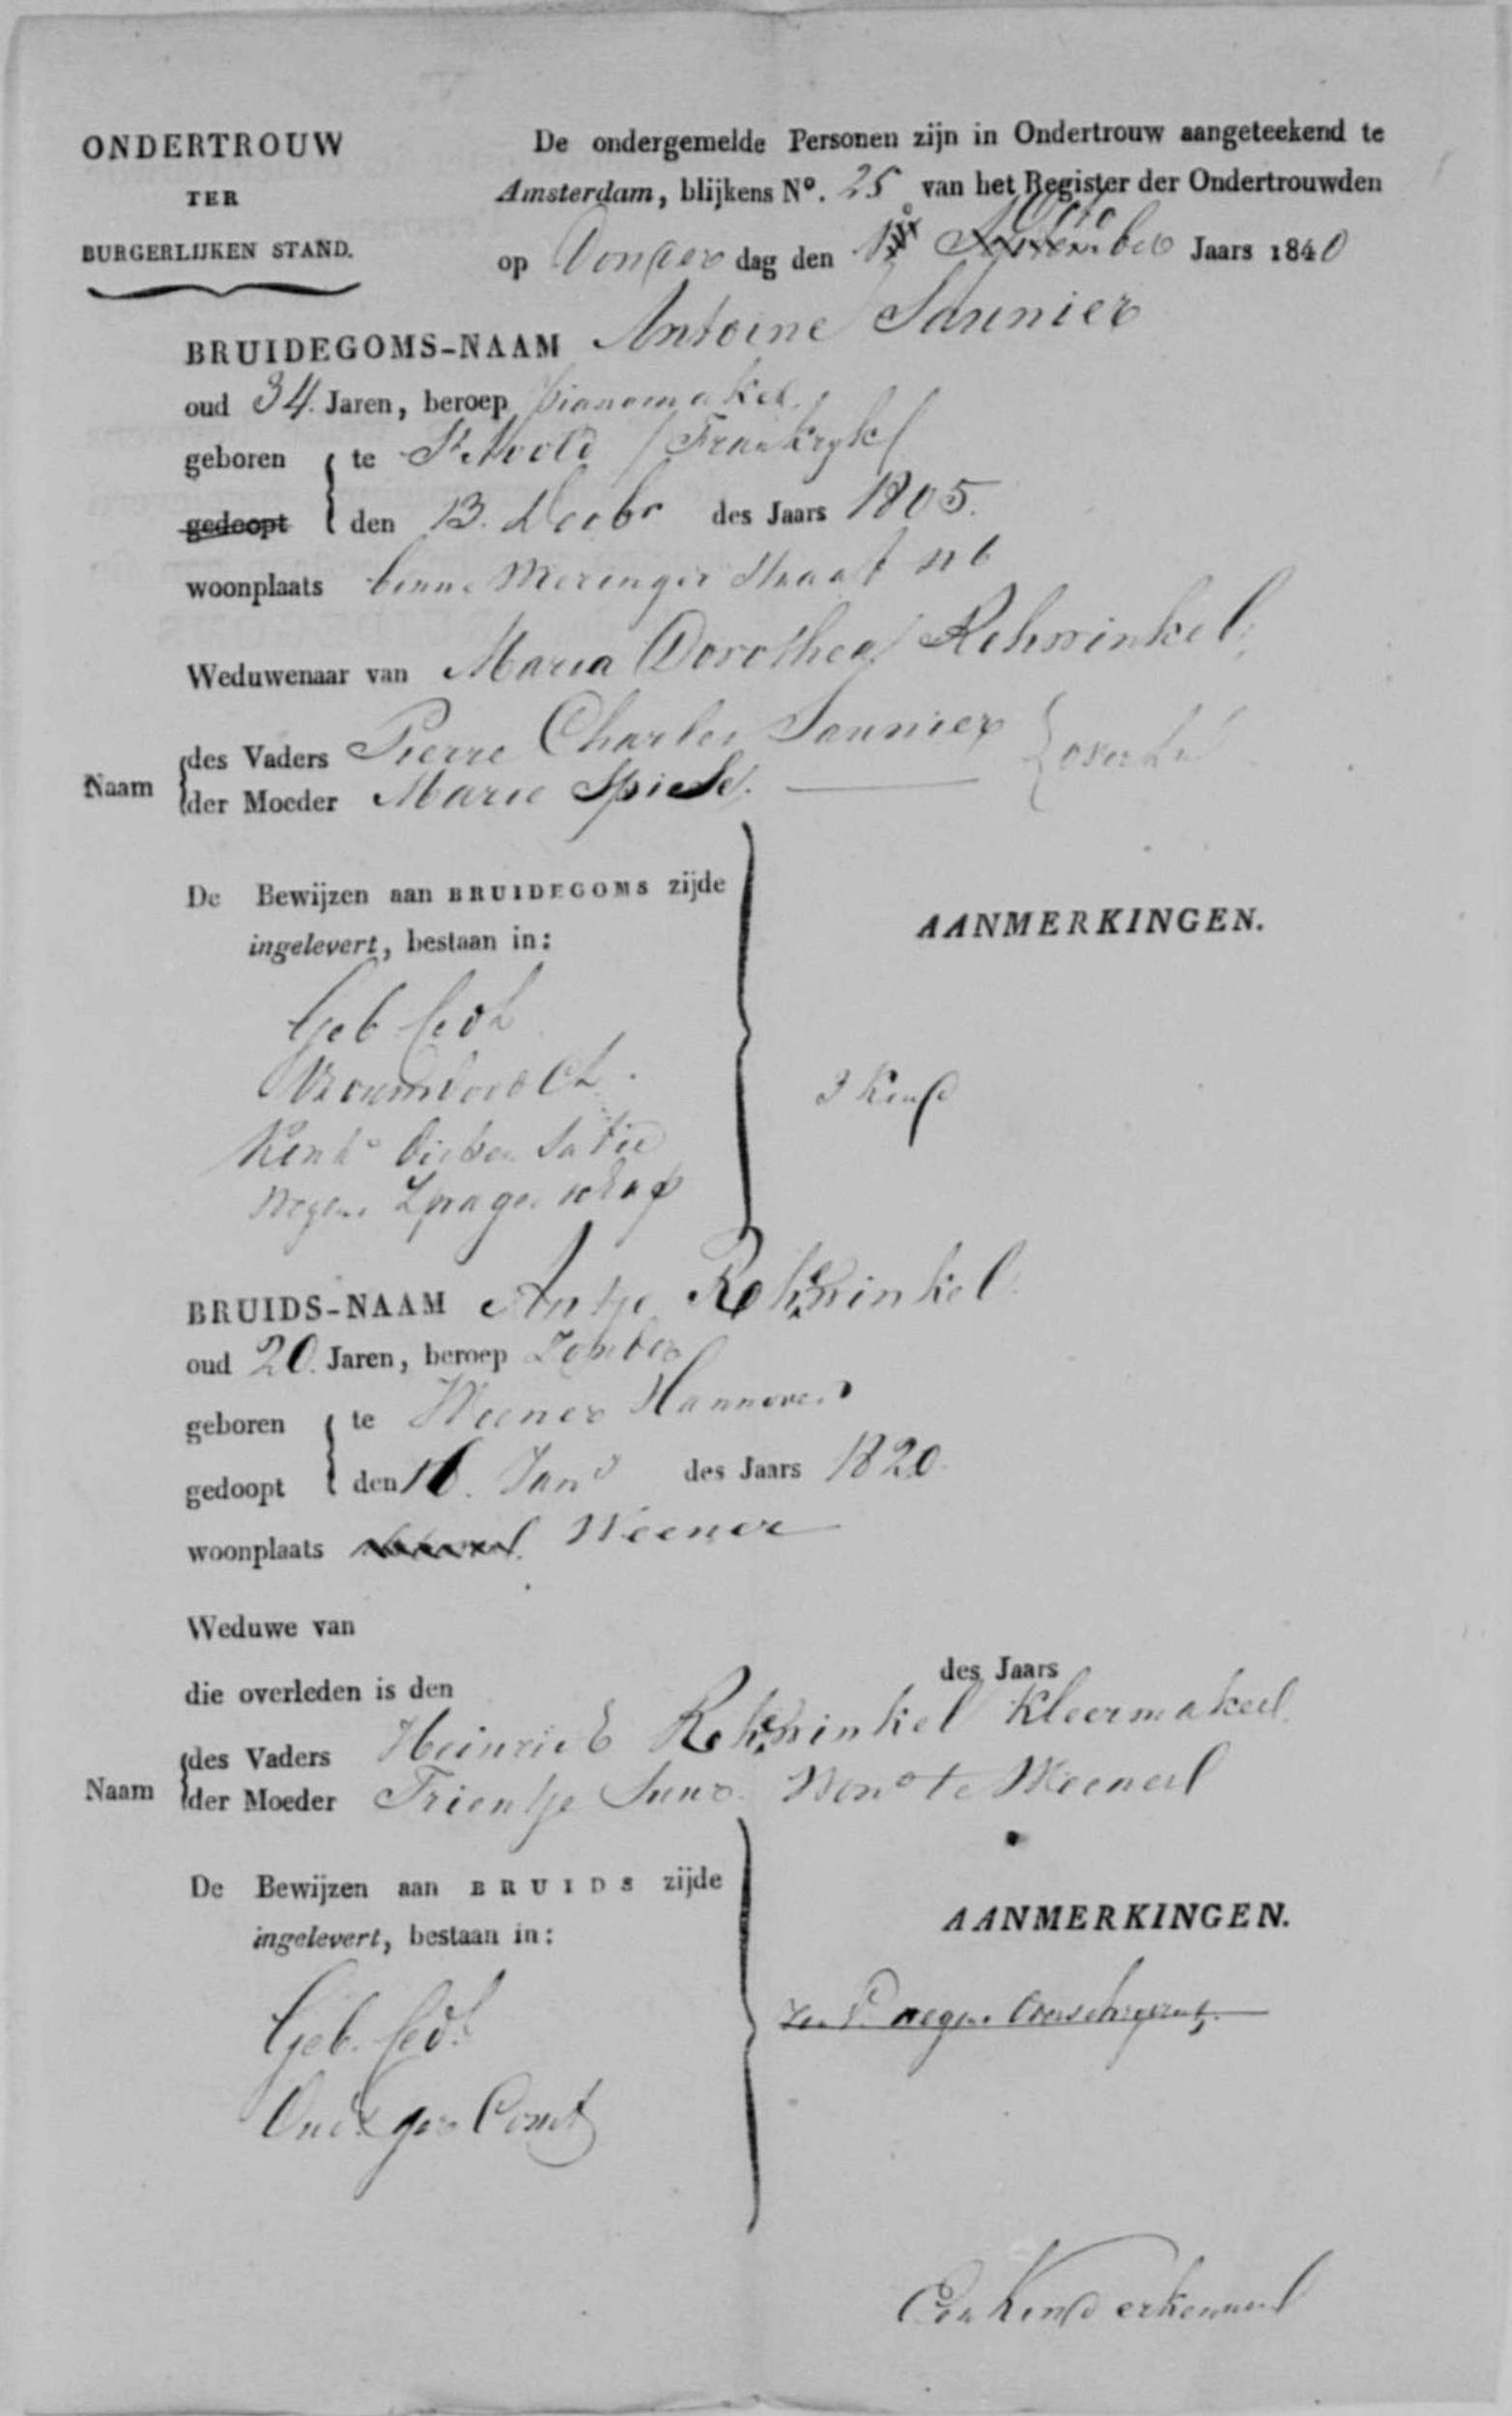 ONDERTROUW
TER
BURGERLIJKEN STAND.
De ondergemelde Personen zijn in Ondertrouw aangeteekend te
Amsterdam, blijkens Nº. 25 van het Register der Ondertrouwden
op Donder dag den Jaars 1840
BRUIDEGOMS-NAAM Antoine Saunier
oud 34. Jaren, beroep pianomaker
geboren te St. Avold / Frankryk /
gedoopt den 13. Decbr des Jaars 1805.
woonplaats straat
Weduwenaar van Maria Dorothea Rehwinkel
Naam des Vaders Pierre Charles Saunier
der Moeder Marie
De Bewijzen aan BRUIDEGOMS zijde
ingelevert, bestaan in:
AANMERKINGEN.
Geb
3 Kind
BRUIDS-NAAM Antje Rehwinkel
oud 20. Jaren, beroep Zonder
geboren te Weener Hannover
gedoopt den 16. Jan des Jaars 1820
woonplaats Weener
Weduwe van
die overleden is den des Jaars
Naam des Vaders Heinrich Rehwinkel Kleermaker
der Moeder Trientje te Weener
De Bewijzen aan BRUIDS zijde
ingelevert, bestaan in:
AANMERKINGEN.
Geb.
Een Kind erkennend